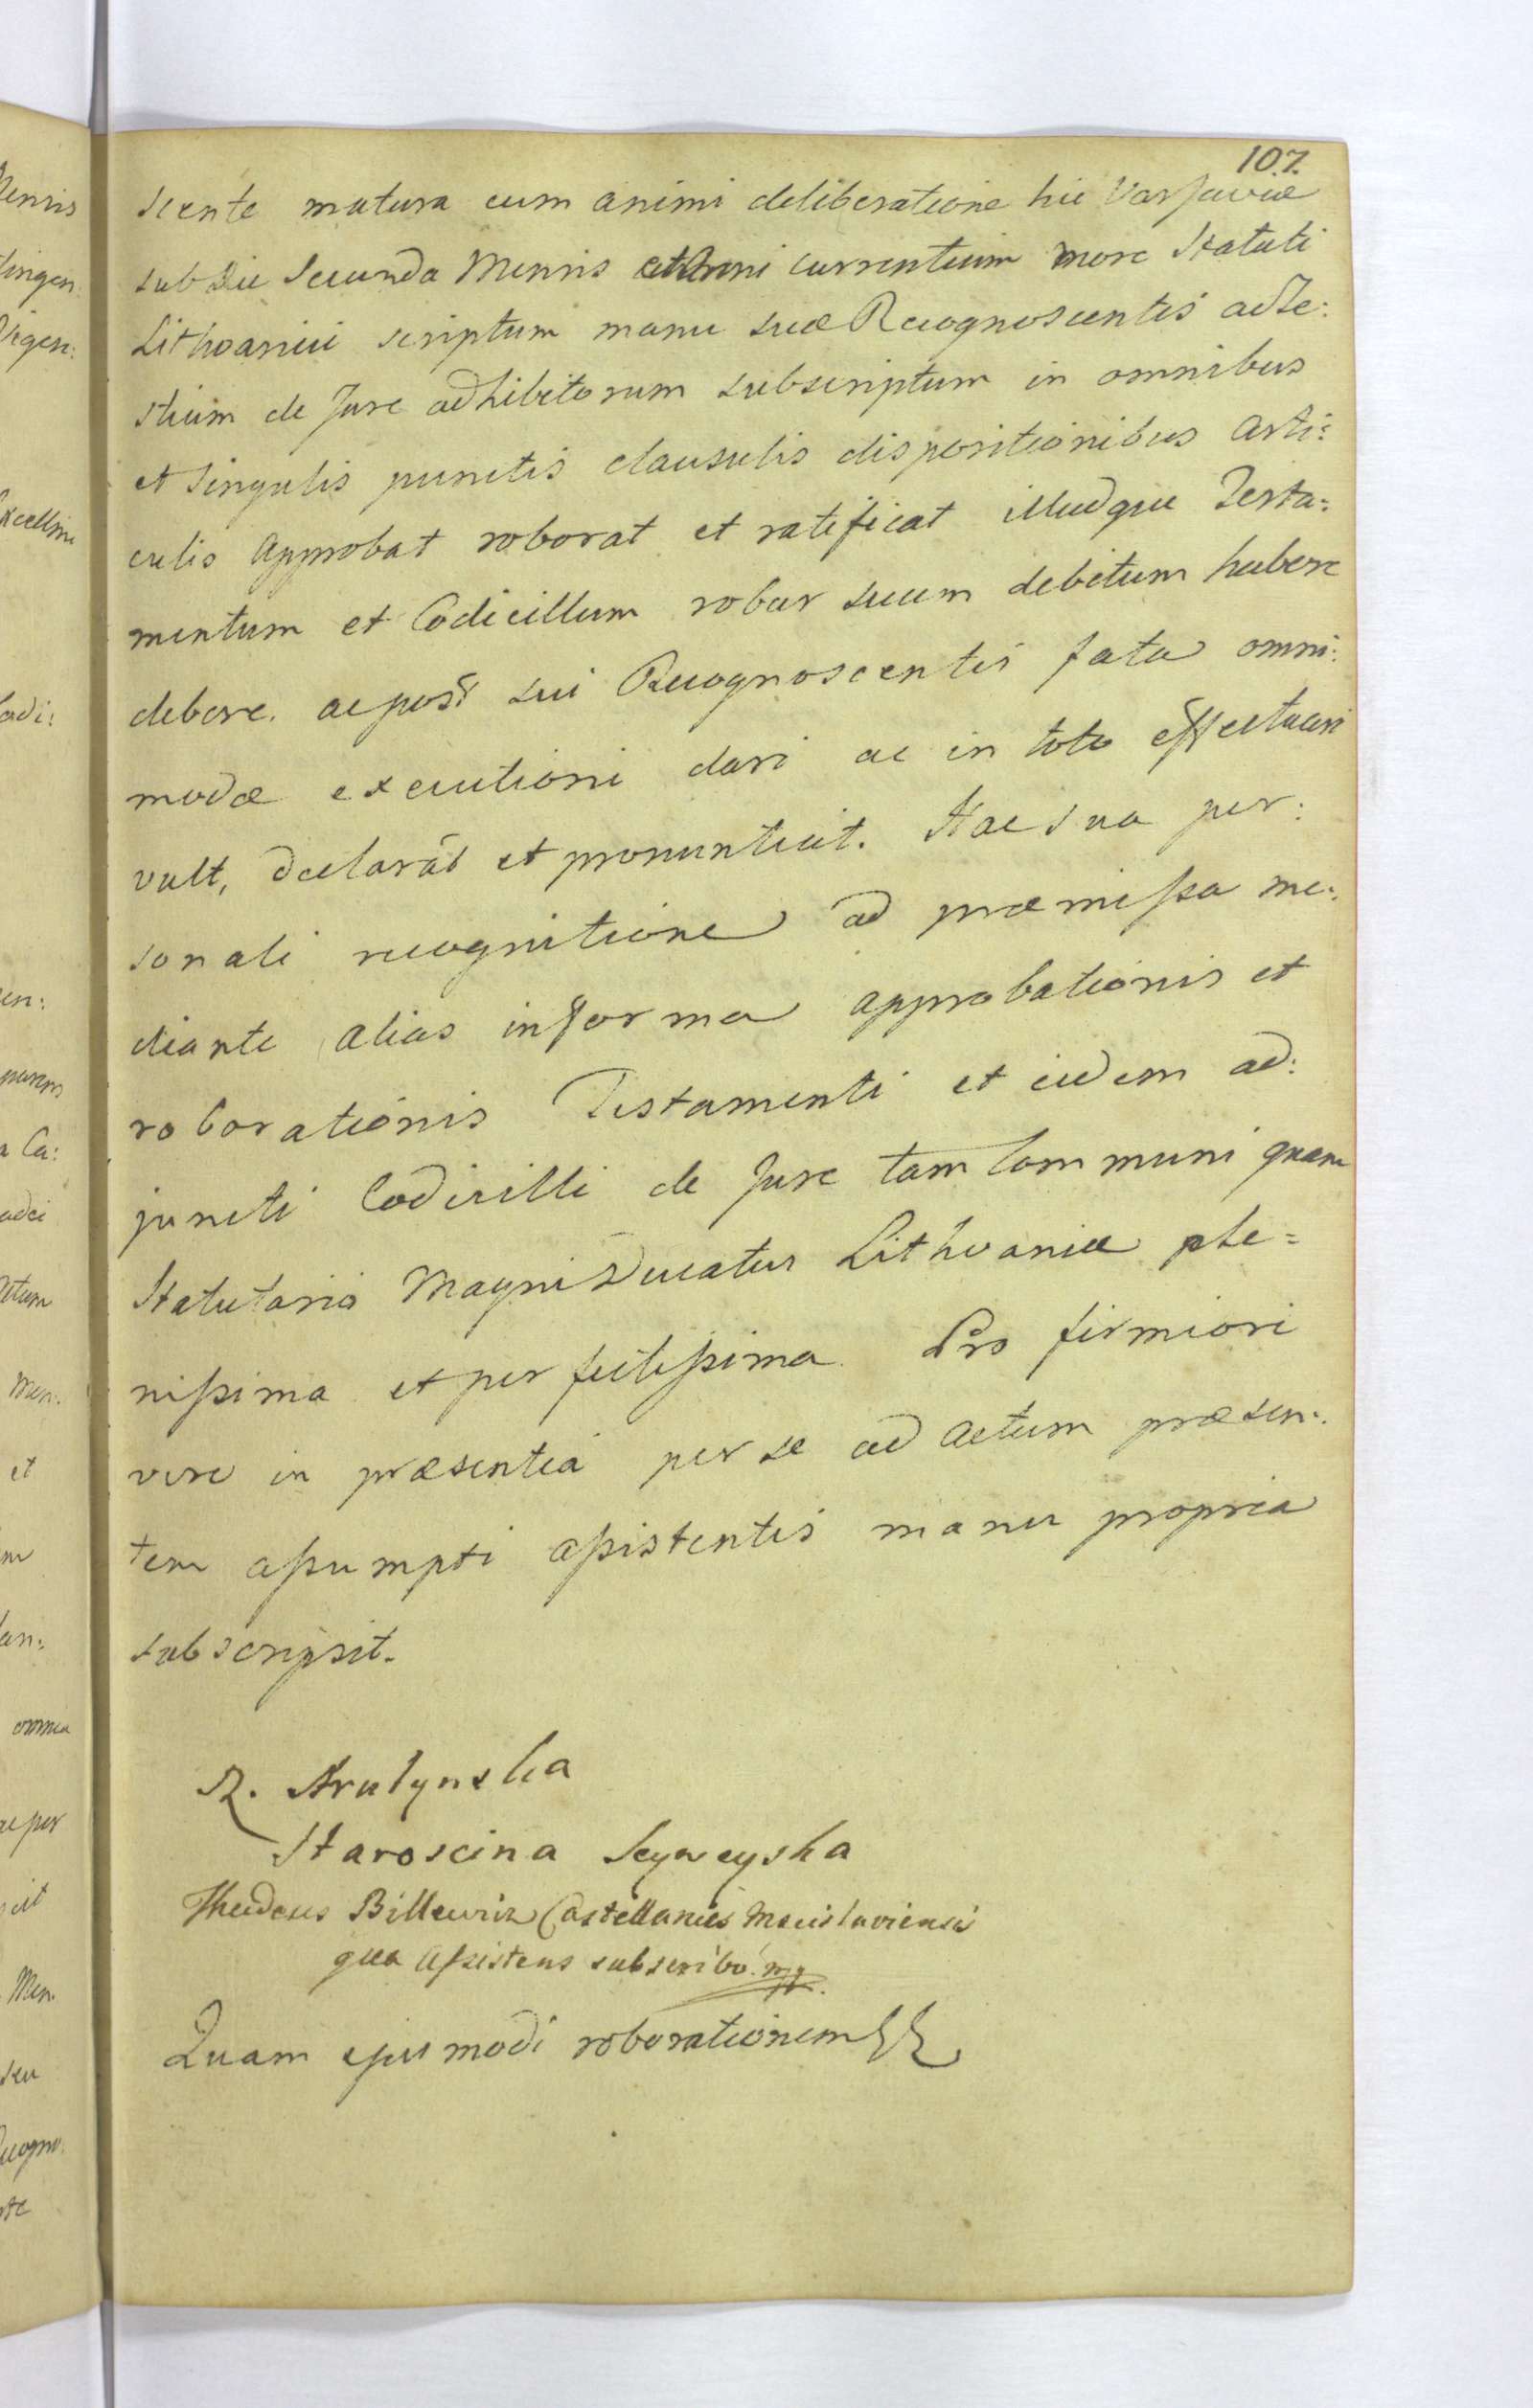 107.
scente matura cum animi deliberatione hic Varsaviæ
sub die Secunda Mensis et Anni currentium more Statuti
Lithvanici scriptum manu suæ Recognoscentis ad Te:
stium de Jure adhibitorum subscriptum in omnibus
et singulis punctis clausulis dispositionibus Arti:
culis approbat roborat et ratificat illudque Testa:
mentum et Codicillum robur suum debitum habere
debere. ac post sui Recognoscentis fata omni:
modæ executioni dari ac in toto effectuari
vult, declarat et pronuntiat. Hac sua per:
sonali recognitione ad præmissa me:
diante alias in forma approbationis et
roborationis Testamenti et eidem ad:
juncti Codicilli de Jure tam Communi quam
Statutario Magni Ducatus Lithvaniæ ple=
nissima et perfectissima. Pro firmiori
vero in præsentia per se ad Actum præsen:
tem assumpti assistentis manu propria
subscripsit.
Staroscina
Thadeus Billewicz Castellanies Mscislaviensis
qua Assistens subscribo mp.
Quam ejusmodi roborationem